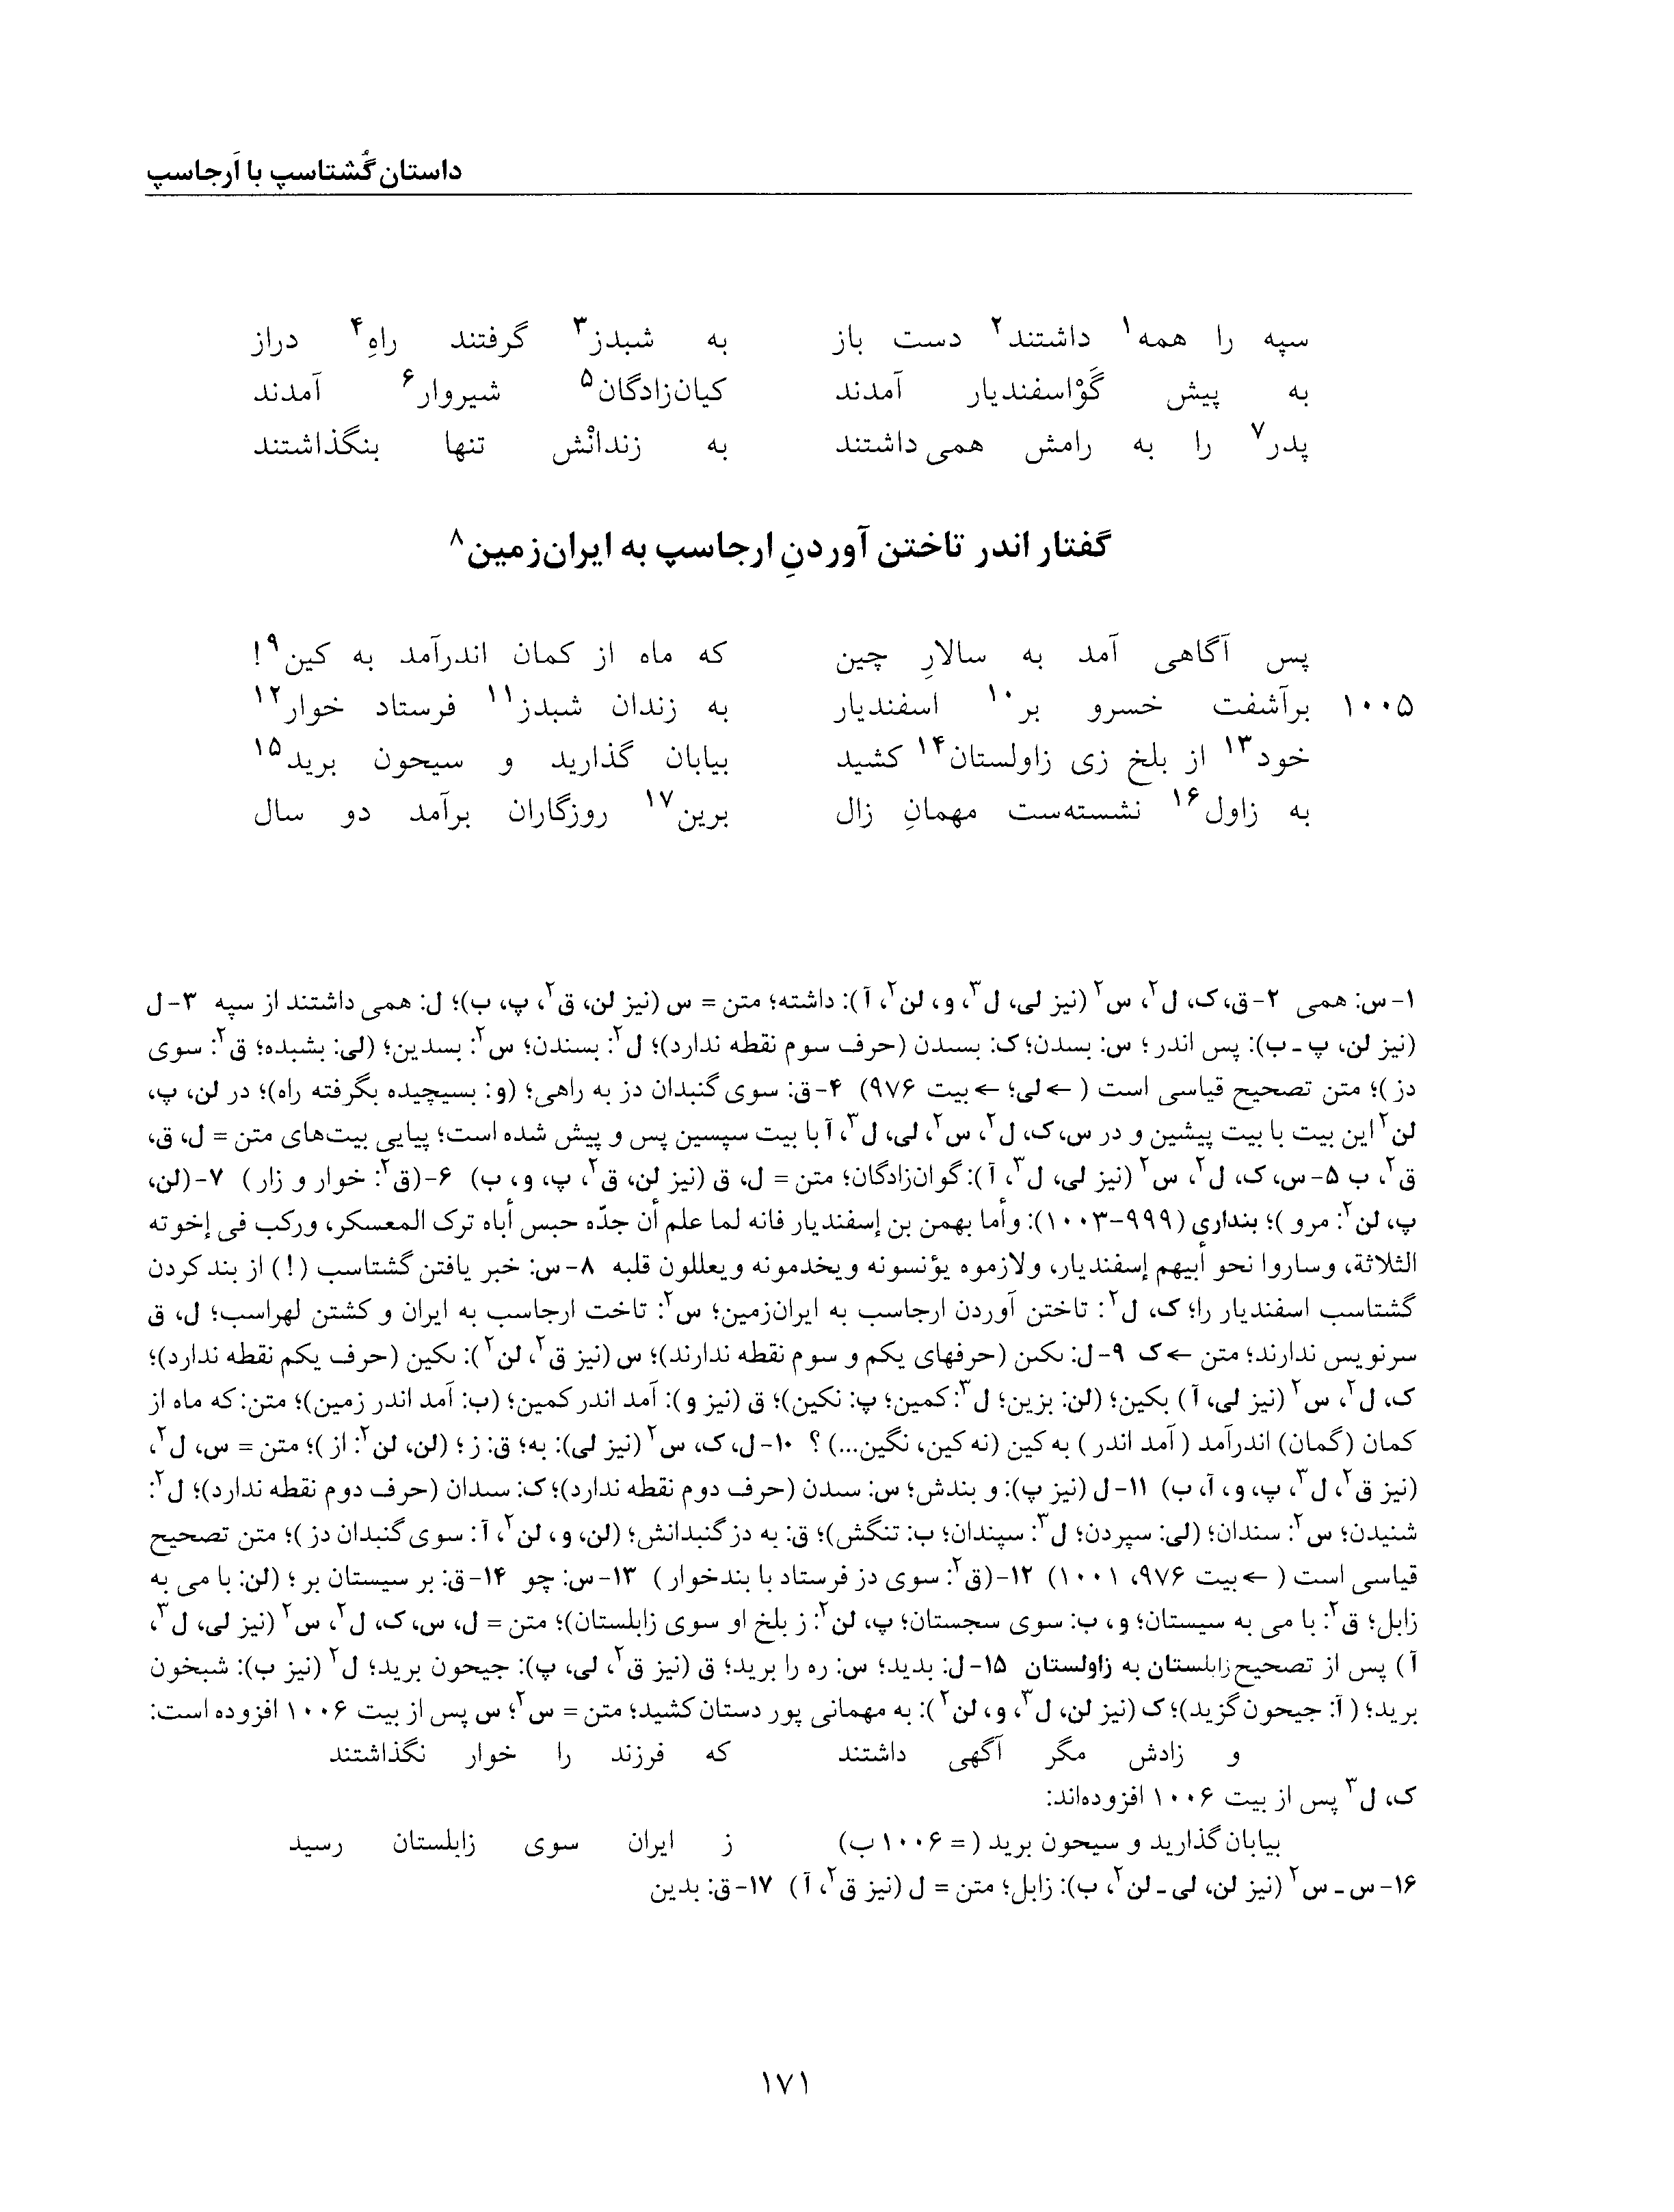 داستان گُشتاسپ با اَرجاسپ
سپه را همه۱ داشتند۲ دست باز به شبدز۳ گرفتند راهِ۴ دراز
به پیش گَوْاسفندیار آمدند کیان‌زادگان۵ شیروار۶ آمدند
پدر۷ را به رامش همی‌داشتند به زندانْش تنها بنگذاشتند
گفتار اندر تاختن آوردنِ ارجاسپ به ایران‌زمین۸
پس آگاهی آمد به سالارِ چین که ماه از کمان اندرآمد به کین۹!
۱۰۰۵ برآشفت خسرو بر۱۰ اسفندیار به زندان شبدز۱۱ فرستاد خوار۱۲
خود۱۳ از بلخ زی زاولستان۱۴ کشید بیابان گذارید و سیحون برید۱۵
به زاول۱۶ نشسته‌ست مهمانِ زال برین۱۷ روزگاران برآمد دو سال
۱- س: همی ۲- ق، ک، ل۲، س۲ (نیز لی، ل۳، و، لن۲، آ): داشته؛ متن = س (نیز لن، ق۲، پ، ب)؛ ل: همی داشتند از سپه ۳- ل
(نیز لن، پ ـ ب): پس اندر؛ س: بسدن؛ ک: بسدن (حرف سوم نقطه ندارد)؛ ل۲: بسندن؛ س۲: بسدین؛ (لی: بشبده؛ ق۲: سوی
دز)؛ متن تصحیح قیاسی است (← لی؛ ← بیت ۹۷۶) ۴- ق: سوی گنبدان دز به راهی؛ (و: بسیچیده بگرفته راه)؛ در لن، پ،
لن۲ این بیت با بیت پیشین و در س، ک، ل۲، س۲، لی، ل۳، آ با بیت سپسین پس و پیش شده است؛ پیایی بیت‌های متن = ل، ق،
ق۲، ب ۵- س، ک، ل۲، س۲ (نیز لی، ل۳، آ): گوان‌زادگان؛ متن = ل، ق (نیز لن، ق۲، پ، و، ب) ۶- (ق۲: خوار و زار) ۷- (لن،
پ، لن۲: مرو)؛ بنداری (۹۹۹-۱۰۰۳): وأما بهمن بن إسفندیار فانه لما علم أن جدّه حبس أباه ترک المعسکر، ورکب فی إخوته
الثلاثة، وساروا نحو أبیهم إسفندیار، ولازموه یؤنسونه ویخدمونه ویعللون قلبه ۸- س: خبر یافتن گشتاسب (!) از بند کردن
گشتاسب اسفندیار را؛ ک، ل۲: تاختن آوردن ارجاسب به ایران‌زمین؛ س۲: تاخت ارجاسب به ایران و کشتن لهراسب؛ ل، ق
سرنویس ندارند؛ متن ← ک ۹- ل: ٮکٮں (حرفهای یکم و سوم نقطه ندارند)؛ س (نیز ق۲، لن۲): ٮکین (حرف یکم نقطه ندارد)؛
ک، ل۲، س۲ (نیز لی، آ) بکین؛ (لن: بزین؛ ل۳: کمین؛ پ: نکین)؛ ق (نیز و): آمد اندر کمین؛ (ب: آمد اندر زمین)؛ متن: که ماه از
کمان (گمان) اندرآمد (آمد اندر) به کین (نه کین، نگین...)؟ ۱۰- ل، ک، س۲ (نیز لی): به؛ ق: ز؛ (لن، لن۲: از)؛ متن = س، ل۲،
(نیز ق۲، ل۳، پ، و، آ، ب) ۱۱- ل (نیز پ): و بندش؛ س: سٮدن (حرف دوم نقطه ندارد)؛ ک: سٮدان (حرف دوم نقطه ندارد)؛ ل۲:
شنیدن؛ س۲: سندان؛ (لی: سپردن؛ ل۳: سپندان؛ ب: تنگش)؛ ق: به دز گنبدانش؛ (لن، و، لن۲، آ: سوی گنبدان دز)؛ متن تصحیح
قیاسی است (← بیت ۹۷۶، ۱۰۰۱) ۱۲- (ق۲: سوی دز فرستاد با بندخوار) ۱۳- س: چو ۱۴- ق: بر سیستان بر؛ (لن: با می به
زابل؛ ق۲: با می به سیستان؛ و، ب: سوی سجستان؛ پ، لن۲: ز بلخ او سوی زابلستان)؛ متن = ل، س، ک، ل۲، س۲ (نیز لی، ل۳،
آ) پس از تصحیح زابلستان به زاولستان ۱۵- ل: بدید؛ س: ره را برید؛ ق (نیز ق۲، لی، پ): جیحون برید؛ ل۲ (نیز ب): شبخون
برید؛ (آ: جیحون گزید)؛ ک (نیز لن، ل۳، و، لن۲): به مهمانی پور دستان کشید؛ متن = س۲؛ س پس از بیت ۱۰۰۶ افزوده است:
و زادش مگر آگهی داشتند که فرزند را خوار نگذاشتند
ک، ل۳ پس از بیت ۱۰۰۶ افزوده‌اند:
بیابان گذارید و سیحون برید (= ۱۰۰۶ ب) ز ایران سوی زابلستان رسید
۱۶- س ـ س۲ (نیز لن، لی ـ لن۲، ب): زابل؛ متن = ل (نیز ق۲، آ) ۱۷- ق: بدین
۱۷۱